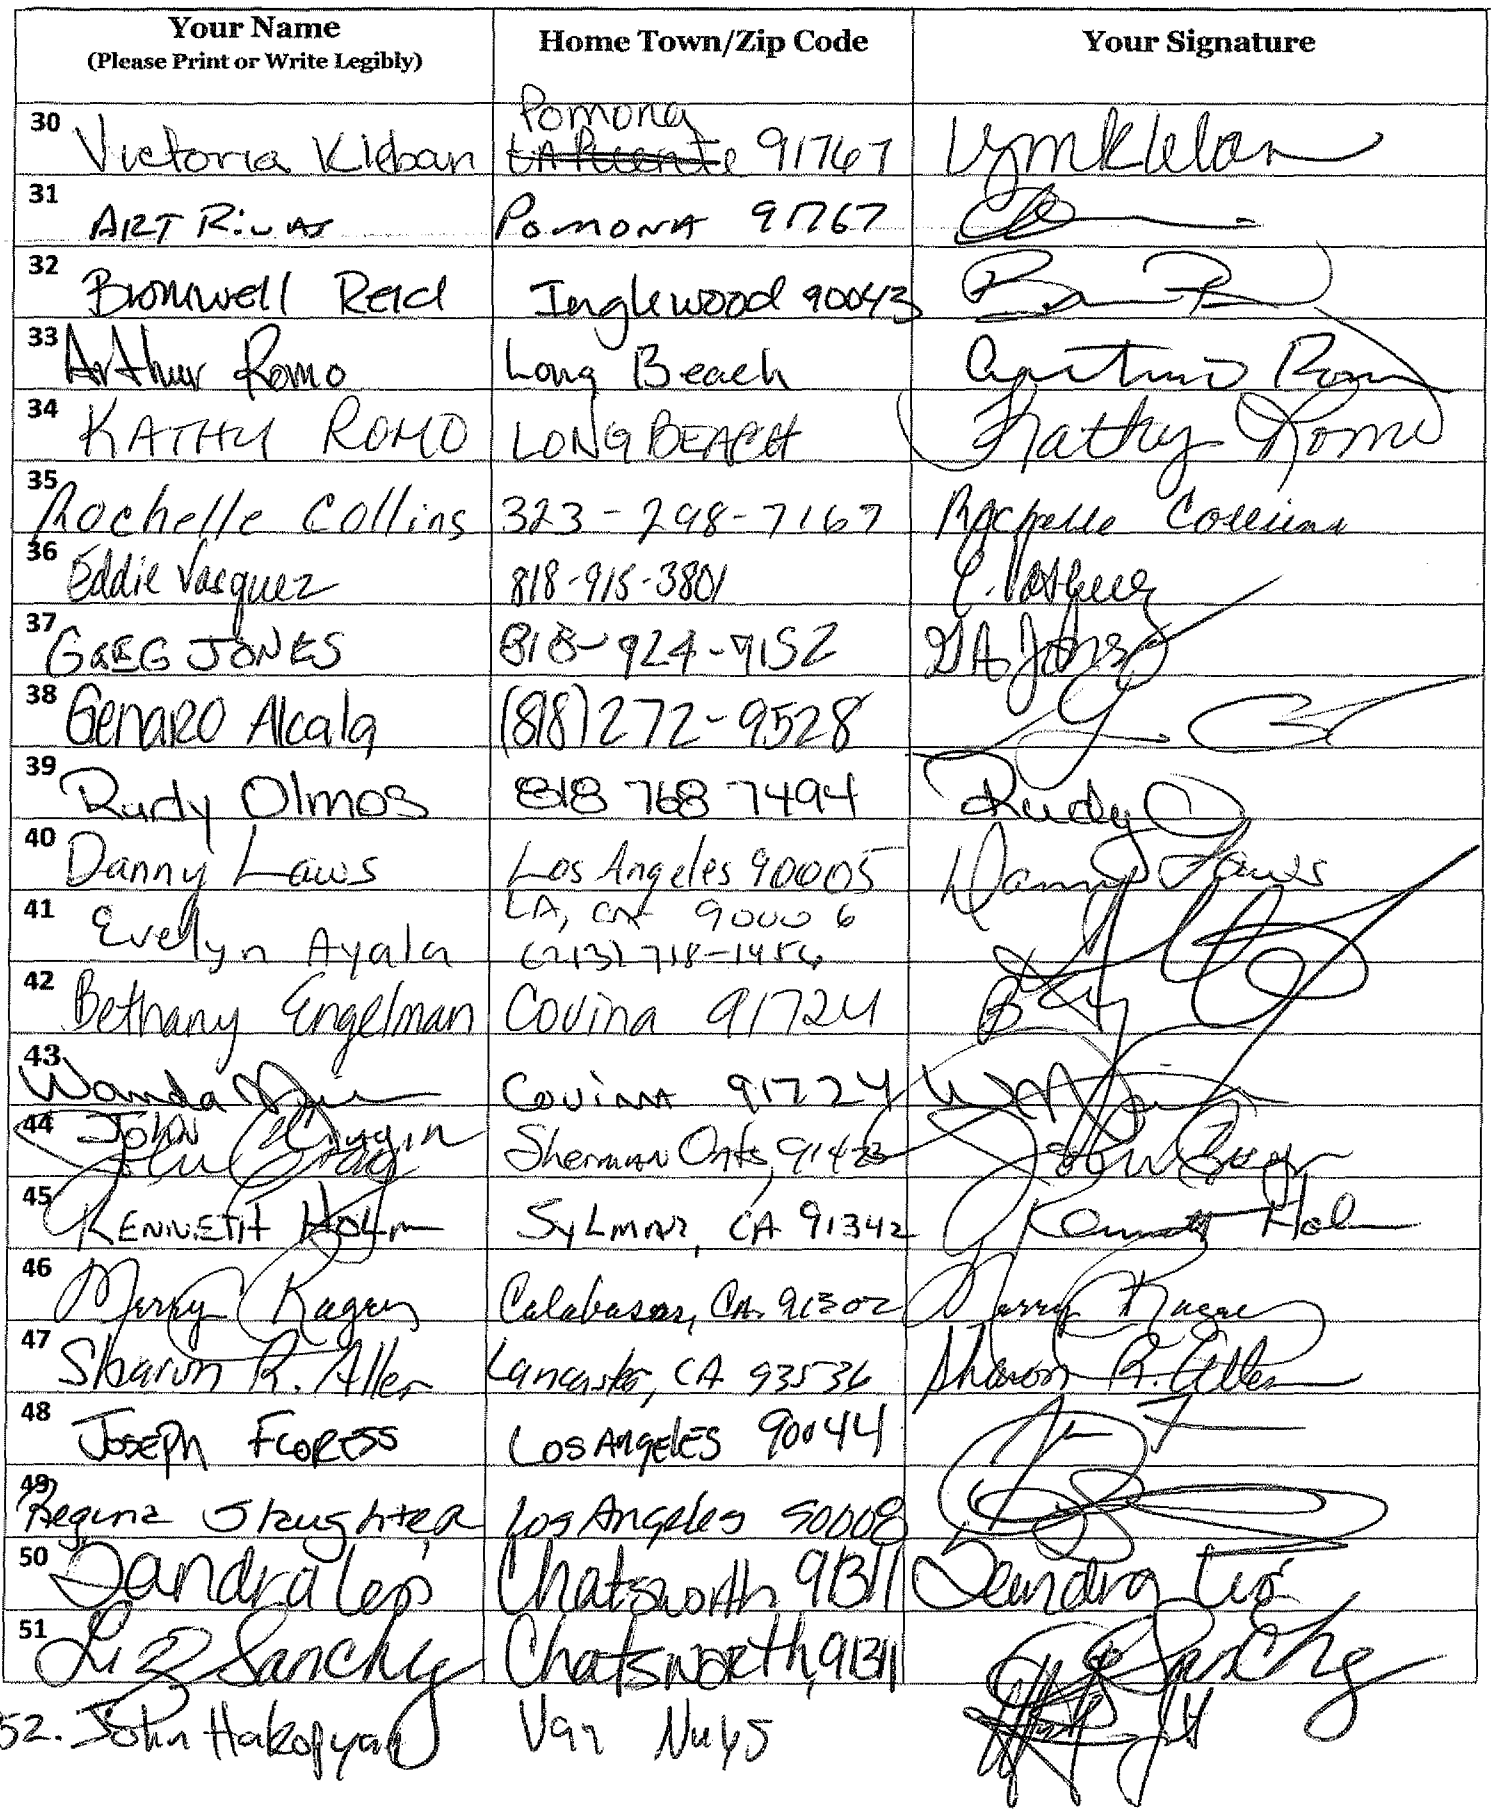 Your Name Home Town/Zip Code Your Signature
(Please Print or Write Legibly)
30 Victoria Kleban Pomona LA Puente 91767
31 ART Rivas POMONA 91767
32 Bromwell Reid Inglewood 90043
33 Arthur Romo Long Beach Arthur Romo
34 KATHY ROMO LONG BEACH Kathy Romo
35 Rochelle Collins 323-298-7167 Rochelle Collins
36 Eddie Vasquez 818-915-3801 E. Vasquez
37 GREG JONES 818-924-9152 GA Jones
38 GENARO Alcala (818) 272-9528
39 Rudy Olmos 818 768 7494 Rudy O
40 Danny Laws Los Angeles 90005 Danny Laws
41 Evelyn Ayala LA, CA 90006
(213) 718-1456
42 Bethany Engelman Covina 91724
43 Wanda Covina 91724
44 John Sherman Oaks, 91423
45 KENNETH HOLM SYLMAR, CA 91342 Kenneth Holm
46 Merry Kagan Calabasas, CA. 91302 Merry Kagan
47 Sharon R. Aller Lancaster, CA 93536 Sharon R. Aller
48 JOSEPH FLORESS LOS ANGELES 90044
49 Regina Slaughter Los Angeles 90008
50 Sandra Leos Chatsworth 91311 Sandra Leos
51 Liz Sanchez Chatsworth, 91311 Sanchez
52. John Hakopyan Van Nuys